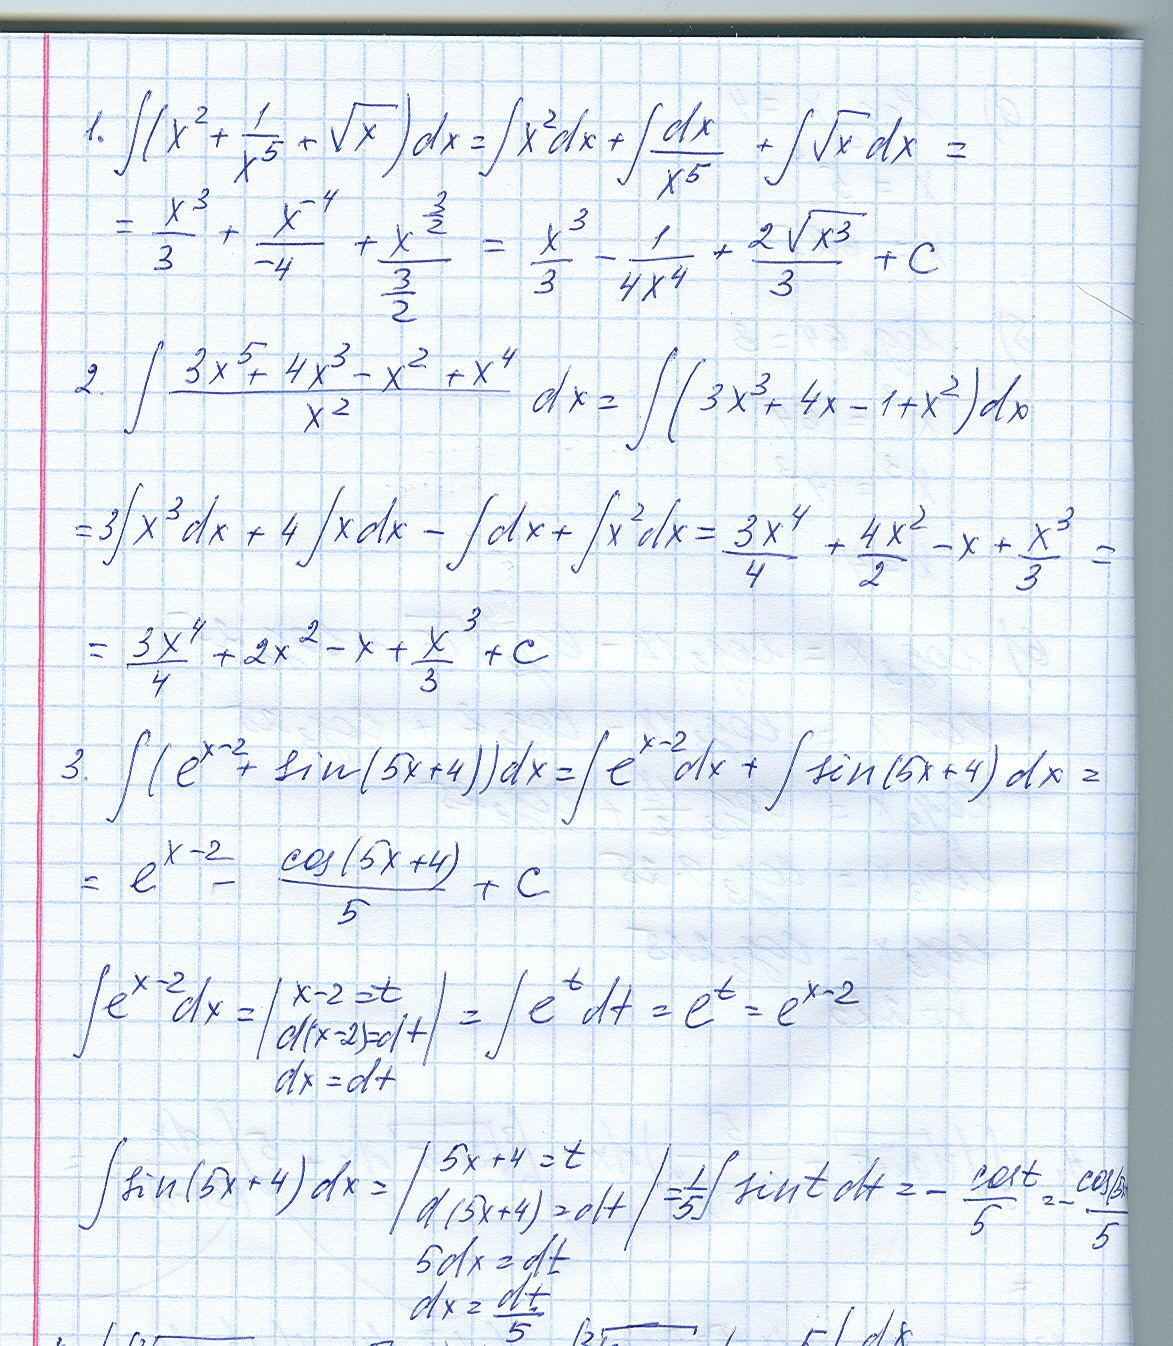 1. ∫(x² + 1/x⁵ + √x)dx = ∫x²dx + ∫dx/x⁵ + ∫√x dx =
= x³/3 + x⁻⁴/-4 + x^(3/2)/(3/2) = x³/3 - 1/4x⁴ + 2√x³/3 + C
2. ∫ (3x⁵ + 4x³ - x² + x⁴)/x² dx = ∫(3x³ + 4x - 1 + x²)dx
= 3∫x³dx + 4∫xdx - ∫dx + ∫x²dx = 3x⁴/4 + 4x²/2 - x + x³/3 =
= 3x⁴/4 + 2x² - x + x³/3 + C
3. ∫(e^(x-2) + sin(5x+4))dx = ∫e^(x-2)dx + ∫sin(5x+4)dx =
= e^(x-2) - cos(5x+4)/5 + C
∫e^(x-2)dx = | x-2=t
d(x-2)=dt | = ∫e^t dt = e^t = e^(x-2)
dx=dt
∫sin(5x+4)dx = | 5x+4=t
d(5x+4)=dt | = 1/5 ∫sint dt = - cost/5 = - cos(5x/5
5dx=dt
dx = dt/5